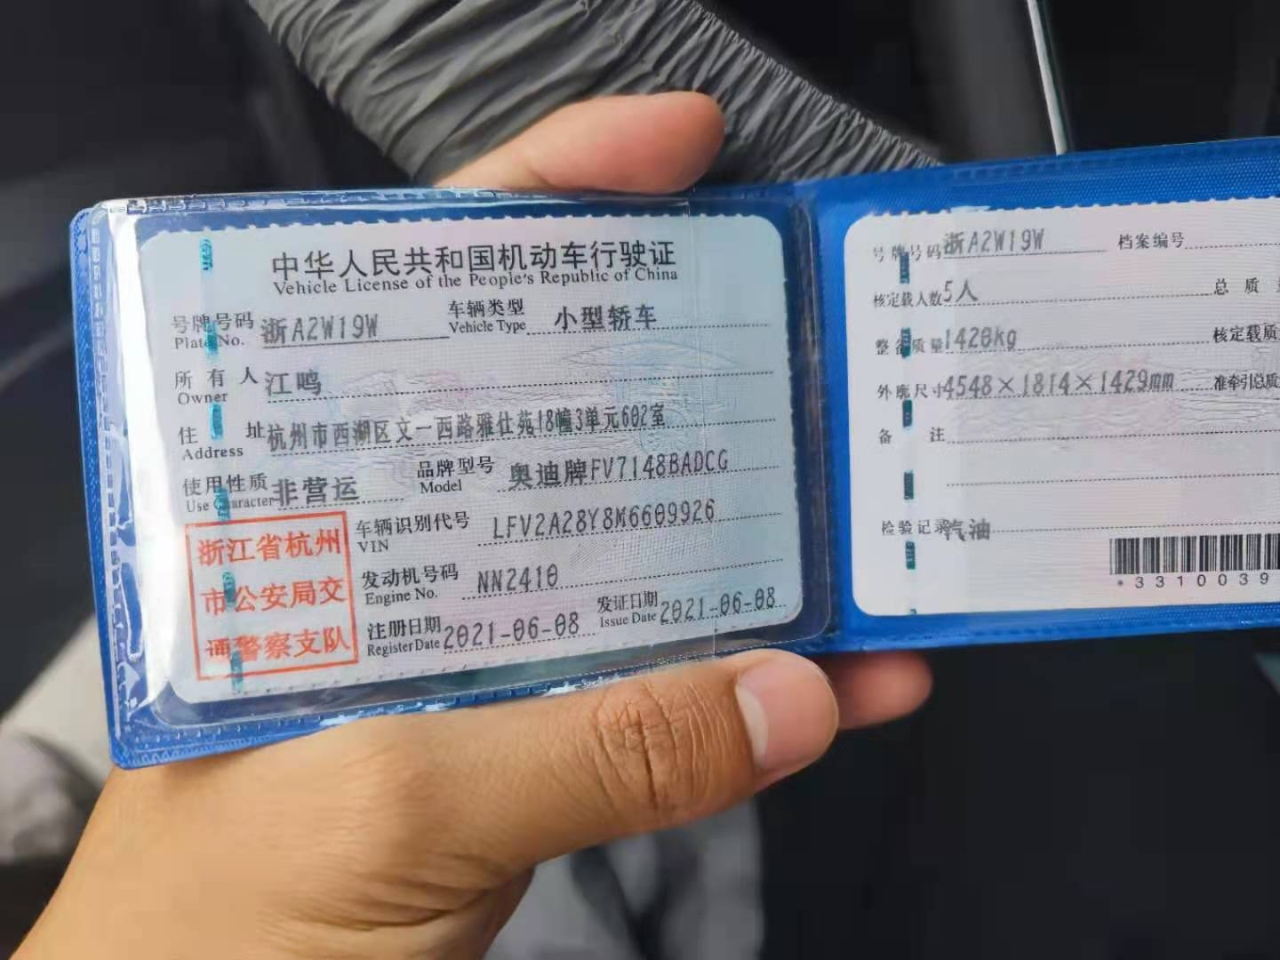 中华人民共和国机动车行驶证
Vehicle License of the People's Republic of China
号牌号码 浙A2W19W 车辆类型 小型轿车
Plate No. Vehicle Type
所有人 江鸣
Owner
住址 杭州市西湖区文一西路雅仕苑18幢3单元602室
Address
使用性质 非营运 品牌型号 奥迪牌FV7148BADCG
Use Character Model
车辆识别代号 LFV2A28Y8M6609926
VIN
发动机号码 NN2410
Engine No.
注册日期 2021-06-08 发证日期 2021-06-08
Register Date Issue Date
浙江省杭州
市公安局交
通警察支队
号牌号码 浙A2W19W 档案编号
核定载人数 5人 总质
整备质量 1420kg 核定载质
外廓尺寸 4548×1814×1429mm 准牵引总质
备注
检验记录 汽油
*3310039